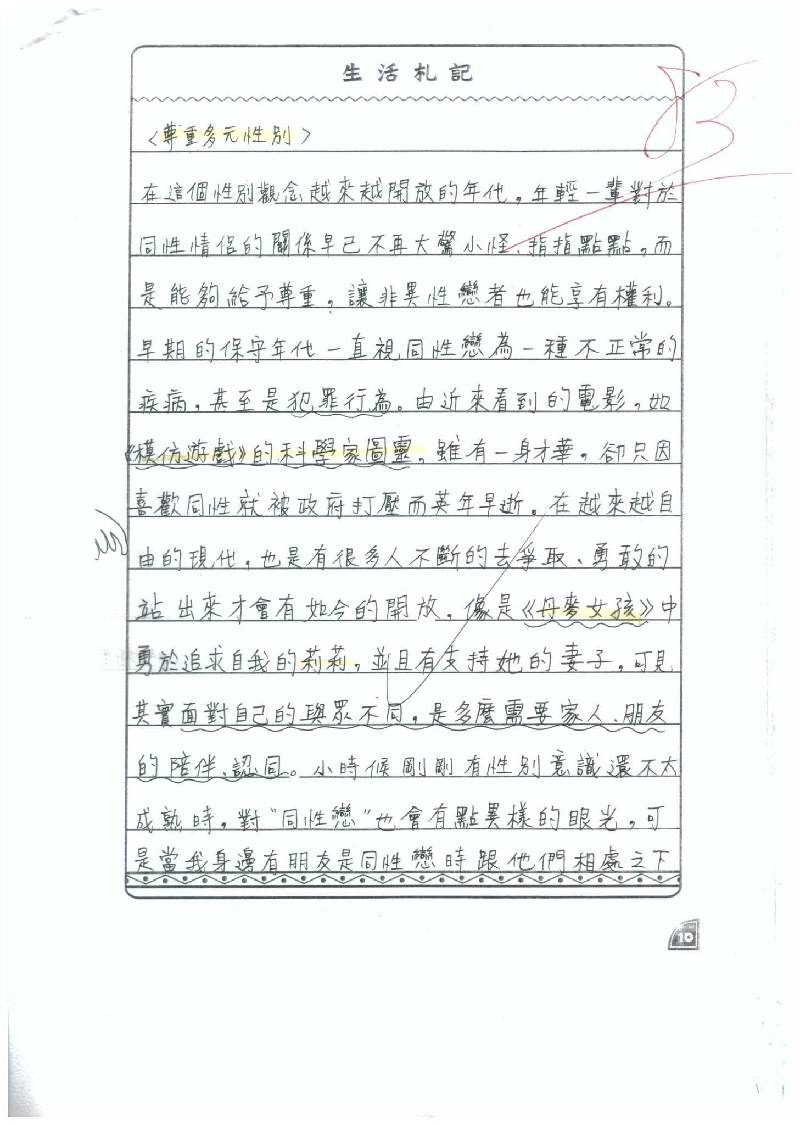 生活札記
83
〈尊重多元性別〉
在這個性別觀念越來越開放的年代，年輕一輩對於
同性情侶的關係早已不再大驚小怪、指指點點，而
是能夠給予尊重，讓非異性戀者也能享有權利。
早期的保守年代一直視同性戀為一種不正常的
疾病，甚至是犯罪行為。由近來看到的電影，如
《模仿遊戲》的科學家圖靈，雖有一身才華，卻只因
喜歡同性就被政府打壓而英年早逝。在越來越自
由的現代，也是有很多人不斷的去爭取、勇敢的
站出來才會有如今的開放，像是《丹麥女孩》中
勇於追求自我的莉莉，並且有支持她的妻子，可見
其實面對自己的與眾不同，是多麼需要家人、朋友
的陪伴、認同。小時候剛剛有性別意識還不太
成熟時，對“同性戀”也會有點異樣的眼光，可
是當我身邊有朋友是同性戀時跟他們相處之下
10